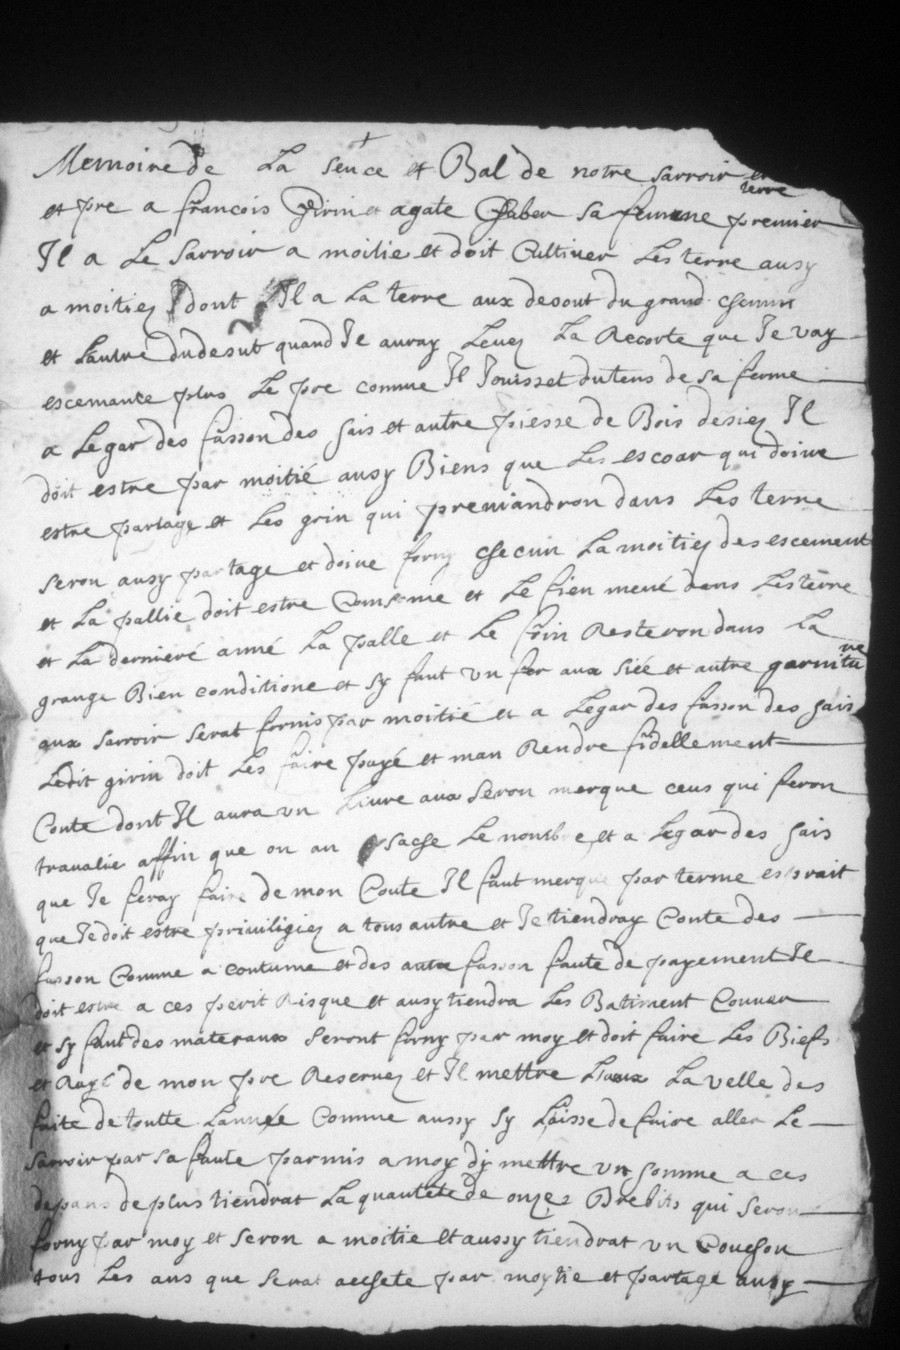 Memoire de La sence et Bal de notre sarroir et
terre
et pre a francois Girin et agate faber sa femme premier
Il a Le sarroir a moitie et doit Cultiver Les terre ausy
a moitiez dont Il a La terre aux desout du grand chemin
et Lautre dudesut quand Je auray Levez La Recorte que Je vay
escemance plus Le pre comme Il Jouisset du tens de sa ferme
a Legar des fasson des sais et autre piesse de Bois desiez Il
doit estre par moitié ausy Biens que Les escoar qui doive
estre partage et Les grin qui previandron dans Les terre
seron ausy partage et doive forny checun La moitiez des escement
et La pallie doit estre Comsome et Le fien mené dans Les terre
et La derniere anné La palle et Le foin Resteron dans La
grange Bien conditione et sy faut un fer aux siée et autre garnitu
re
aux sarroir serat fornis par moitié et a Legar des fasson des sais
Ledit girin doit Les faire payé et man Rendre fidellement
Conte dont Il aura un Livre aux seron merque ceus qui feron
travalie affin que on an sache Le nombre et a Legar des sais
que Je feray faire de mon Conte Il faut merque par terme esprait
que Je doit estre priviligiez a tous autre et Je tiendray Conte des
fasson Comme a coutume et des autre fasson faute de payement Il
doit estre a ces perit Risque et ausy tiendra Les Batiment Couver
et sy faut des materaux seront forny par moy et doit faire Les Biefs
et de mon pre Reservez et Il mettre Laux La velle des
faite de toutte Lannée Comme aussy sy Laisse de faire aller Le
sarroir par sa faute parmis a moy dy mettre un homme a ces
depans de plus tiendrat La quantete de onze Brebits qui seron
forny par moy et seron a moitie et aussy tiendrat un Couchon
tous Les ans que serat achete par moytie et partage ausy